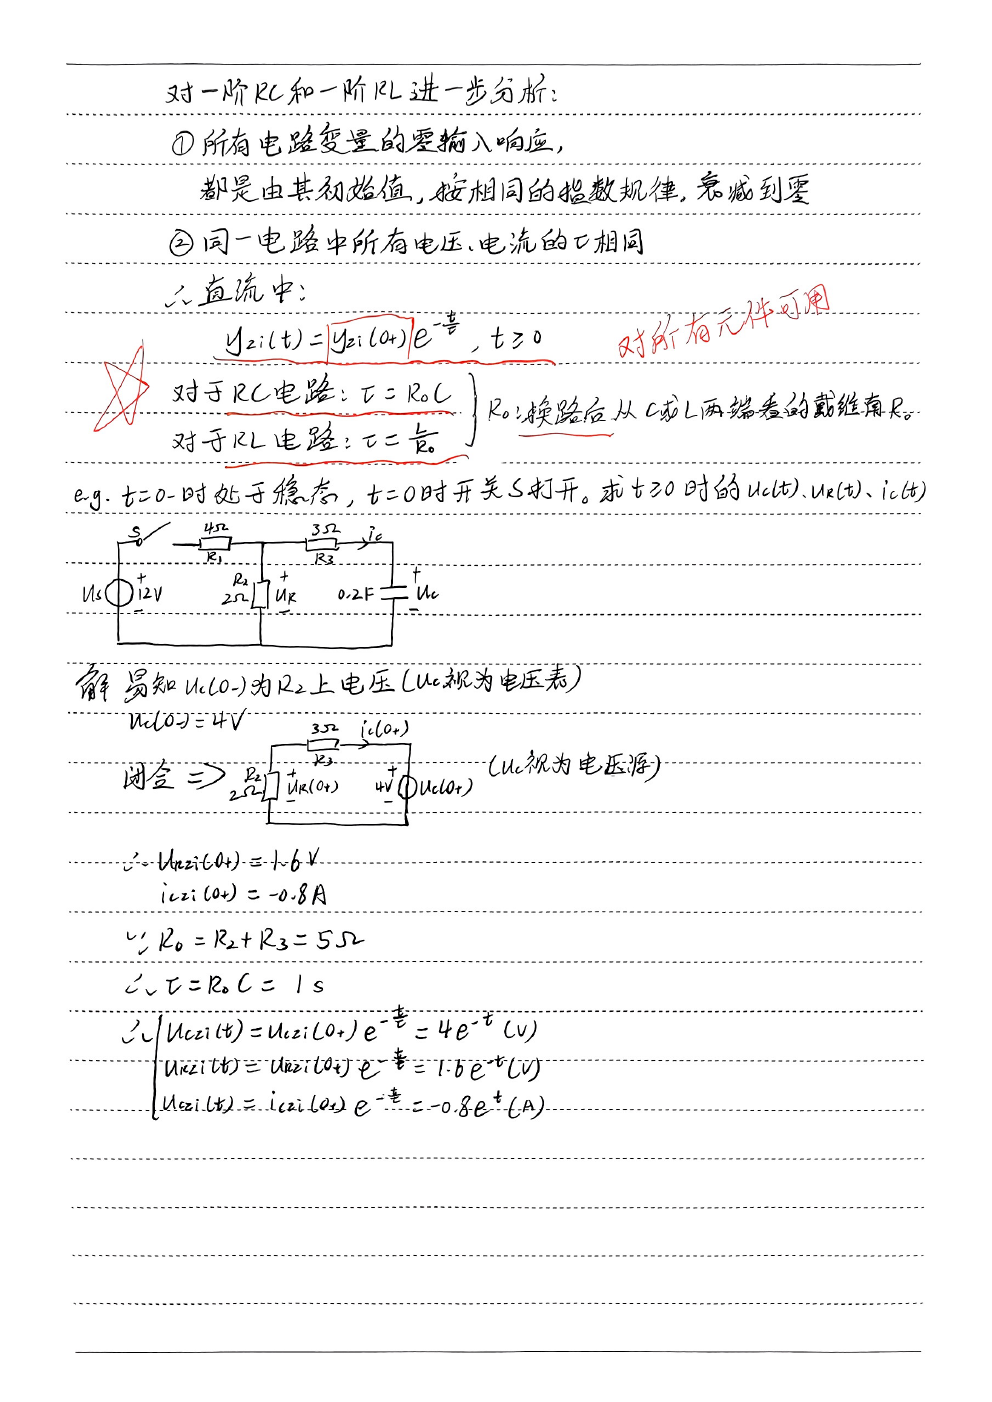 对一阶RC和一阶RL进一步分析:
①所有电路变量的零输入响应,
都是由其初始值,按相同的指数规律,衰减到零
②同一电路中所有电压、电流的τ相同
∴直流中:
yzi(t)=yzi(0+)e^-t/τ, t≥0
对所有元件可用
对于RC电路:τ=R₀C
对于RL电路:τ=L/R₀
R₀:换路后从C或L两端看的戴维南R₀
e.g. t=0-时处于稳态, t=0时开关S打开。求t≥0时的uc(t)、uR(t)、ic(t)
S 4Ω R₁ 3Ω R₃ ic
Us + 12V - R₂ 2Ω + UR - 0.2F + Uc -
解 易知uc(0-)为R₂上电压(uc视为电压表)
uc(0-)=4V
闭合 => R₂ 2Ω + UR(0+) - 3Ω R₃ ic(0+) 4V + - Uc(0+)
(uc视为电压源)
∴uRzi(0+)=1.6V
iczi(0+)=-0.8A
∵R₀=R₂+R₃=5Ω
∴τ=R₀C=1s
∴ uczi(t)=uczi(0+)e^-t/τ=4e^-t(V)
uRzi(t)=uRzi(0+)e^-t/τ=1.6e^-t(V)
uczi(t)=iczi(0+)e^-t/τ=-0.8e^t(A)